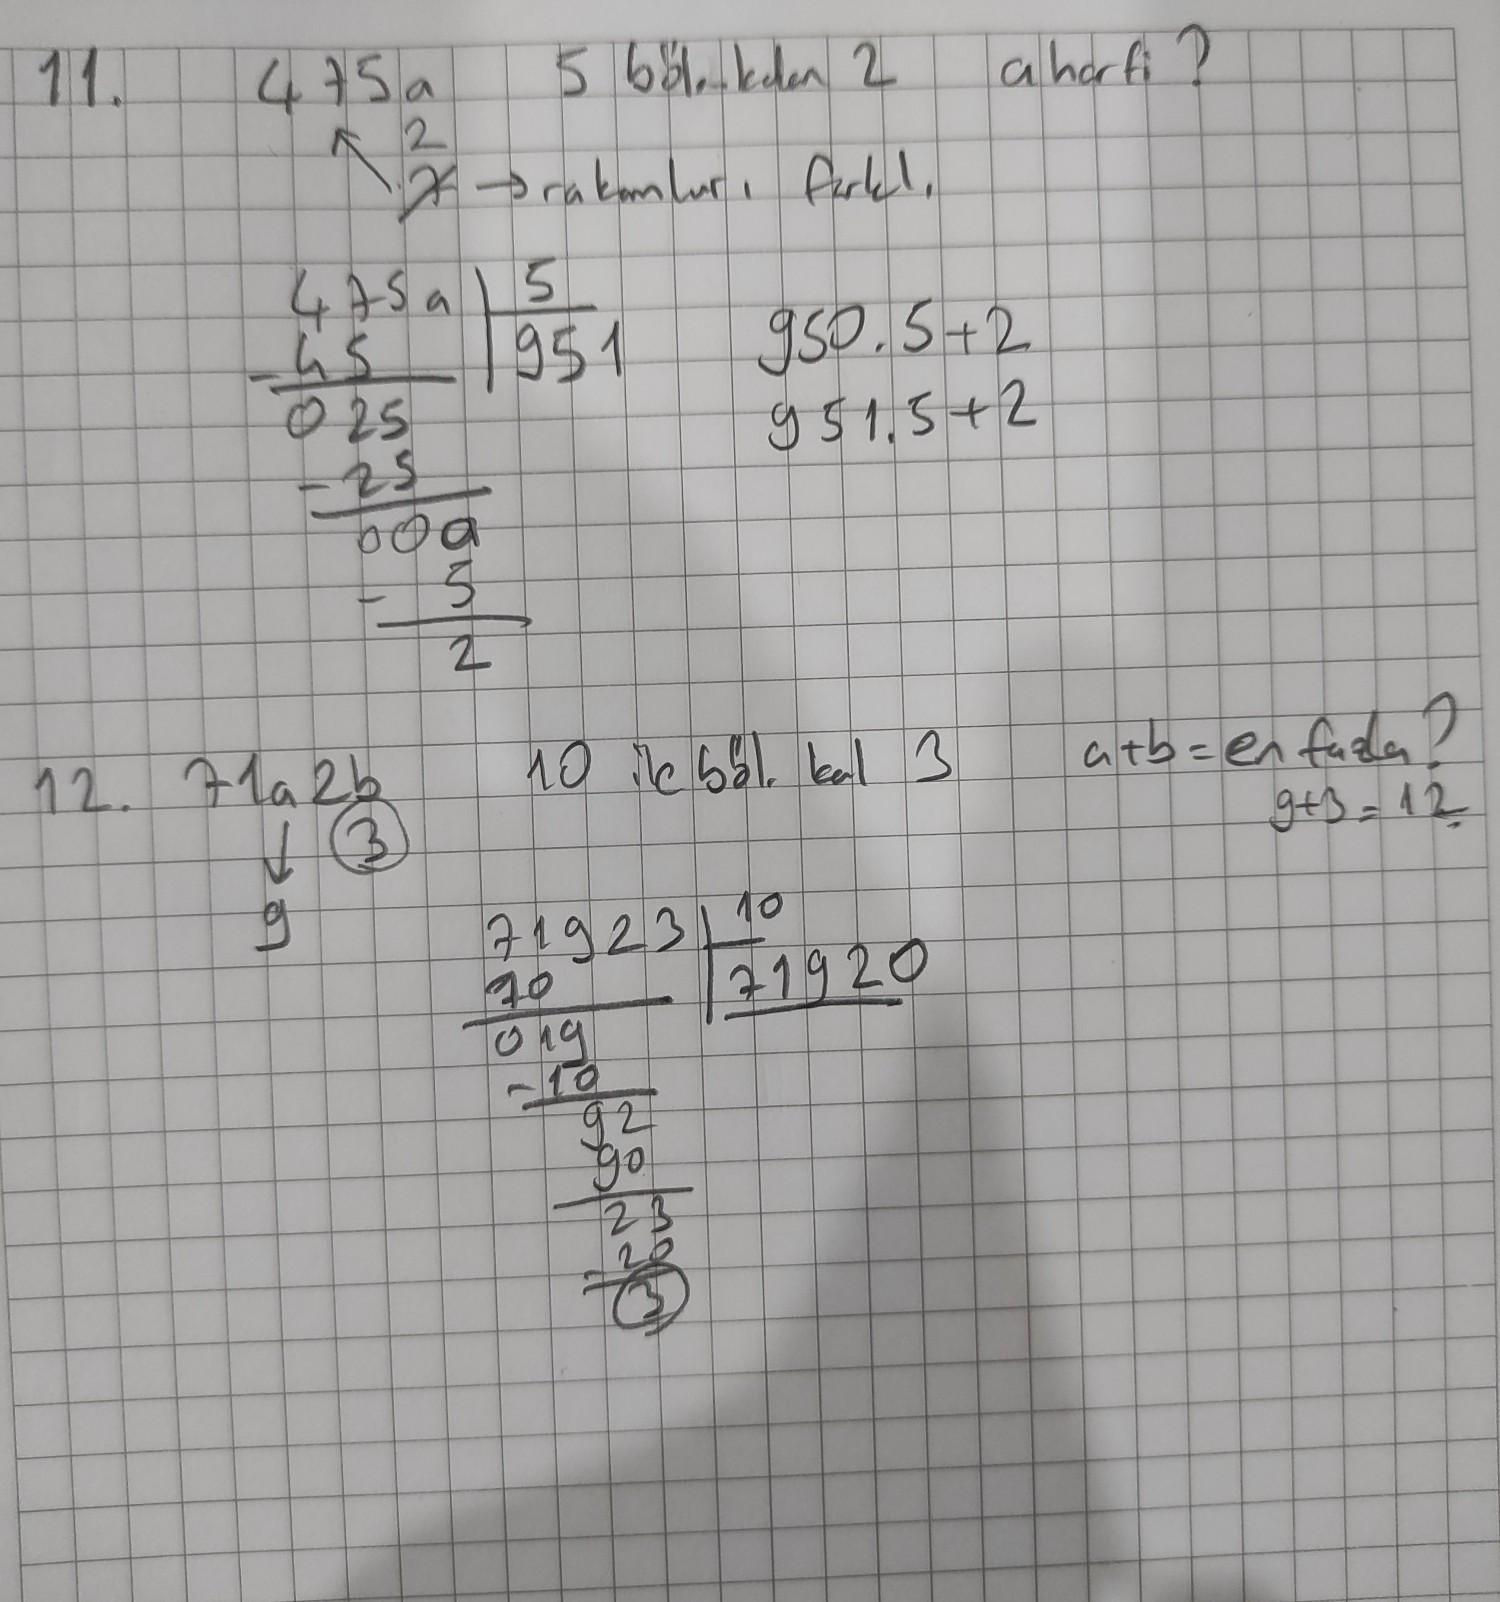 11. 475a 5 böl. kalan 2 a harfi?
2
7 → rakamları farkl.
475a 5
- 45 951
025
- 25
00a
- 5
2
950.5+2
951.5+2
12. 71a2b 10 ile böl. kal 3 a+b = en fazla?
3 9+3 = 12
9
71923 10
70 71920
019
- 10
92
90
23
- 20
3